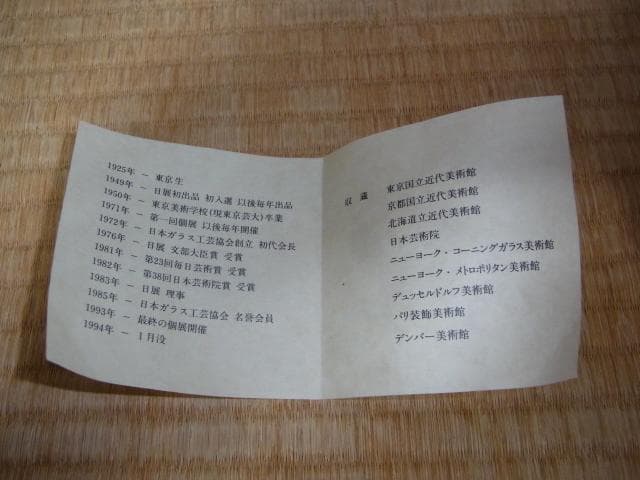 1925年 － 東京生
1949年 － 日展初出品 初入選 以後毎年出品
1950年 － 東京美術学校(現東京芸大)卒業
1971年 － 第一回個展 以後毎年開催
1972年 － 日本ガラス工芸協会創立 初代会長
1976年 － 日展 文部大臣賞 受賞
1981年 － 第23回毎日芸術賞 受賞
1982年 － 第38回日本芸術院賞 受賞
1983年 － 日展 理事
1985年 － 日本ガラス工芸協会 名誉会員
1993年 － 最終の個展開催
1994年 － 1月没
収蔵 東京国立近代美術館
京都国立近代美術館
北海道立近代美術館
日本芸術院
ニューヨーク・コーニングガラス美術館
ニューヨーク・メトロポリタン美術館
デュッセルドルフ美術館
パリ装飾美術館
デンバー美術館